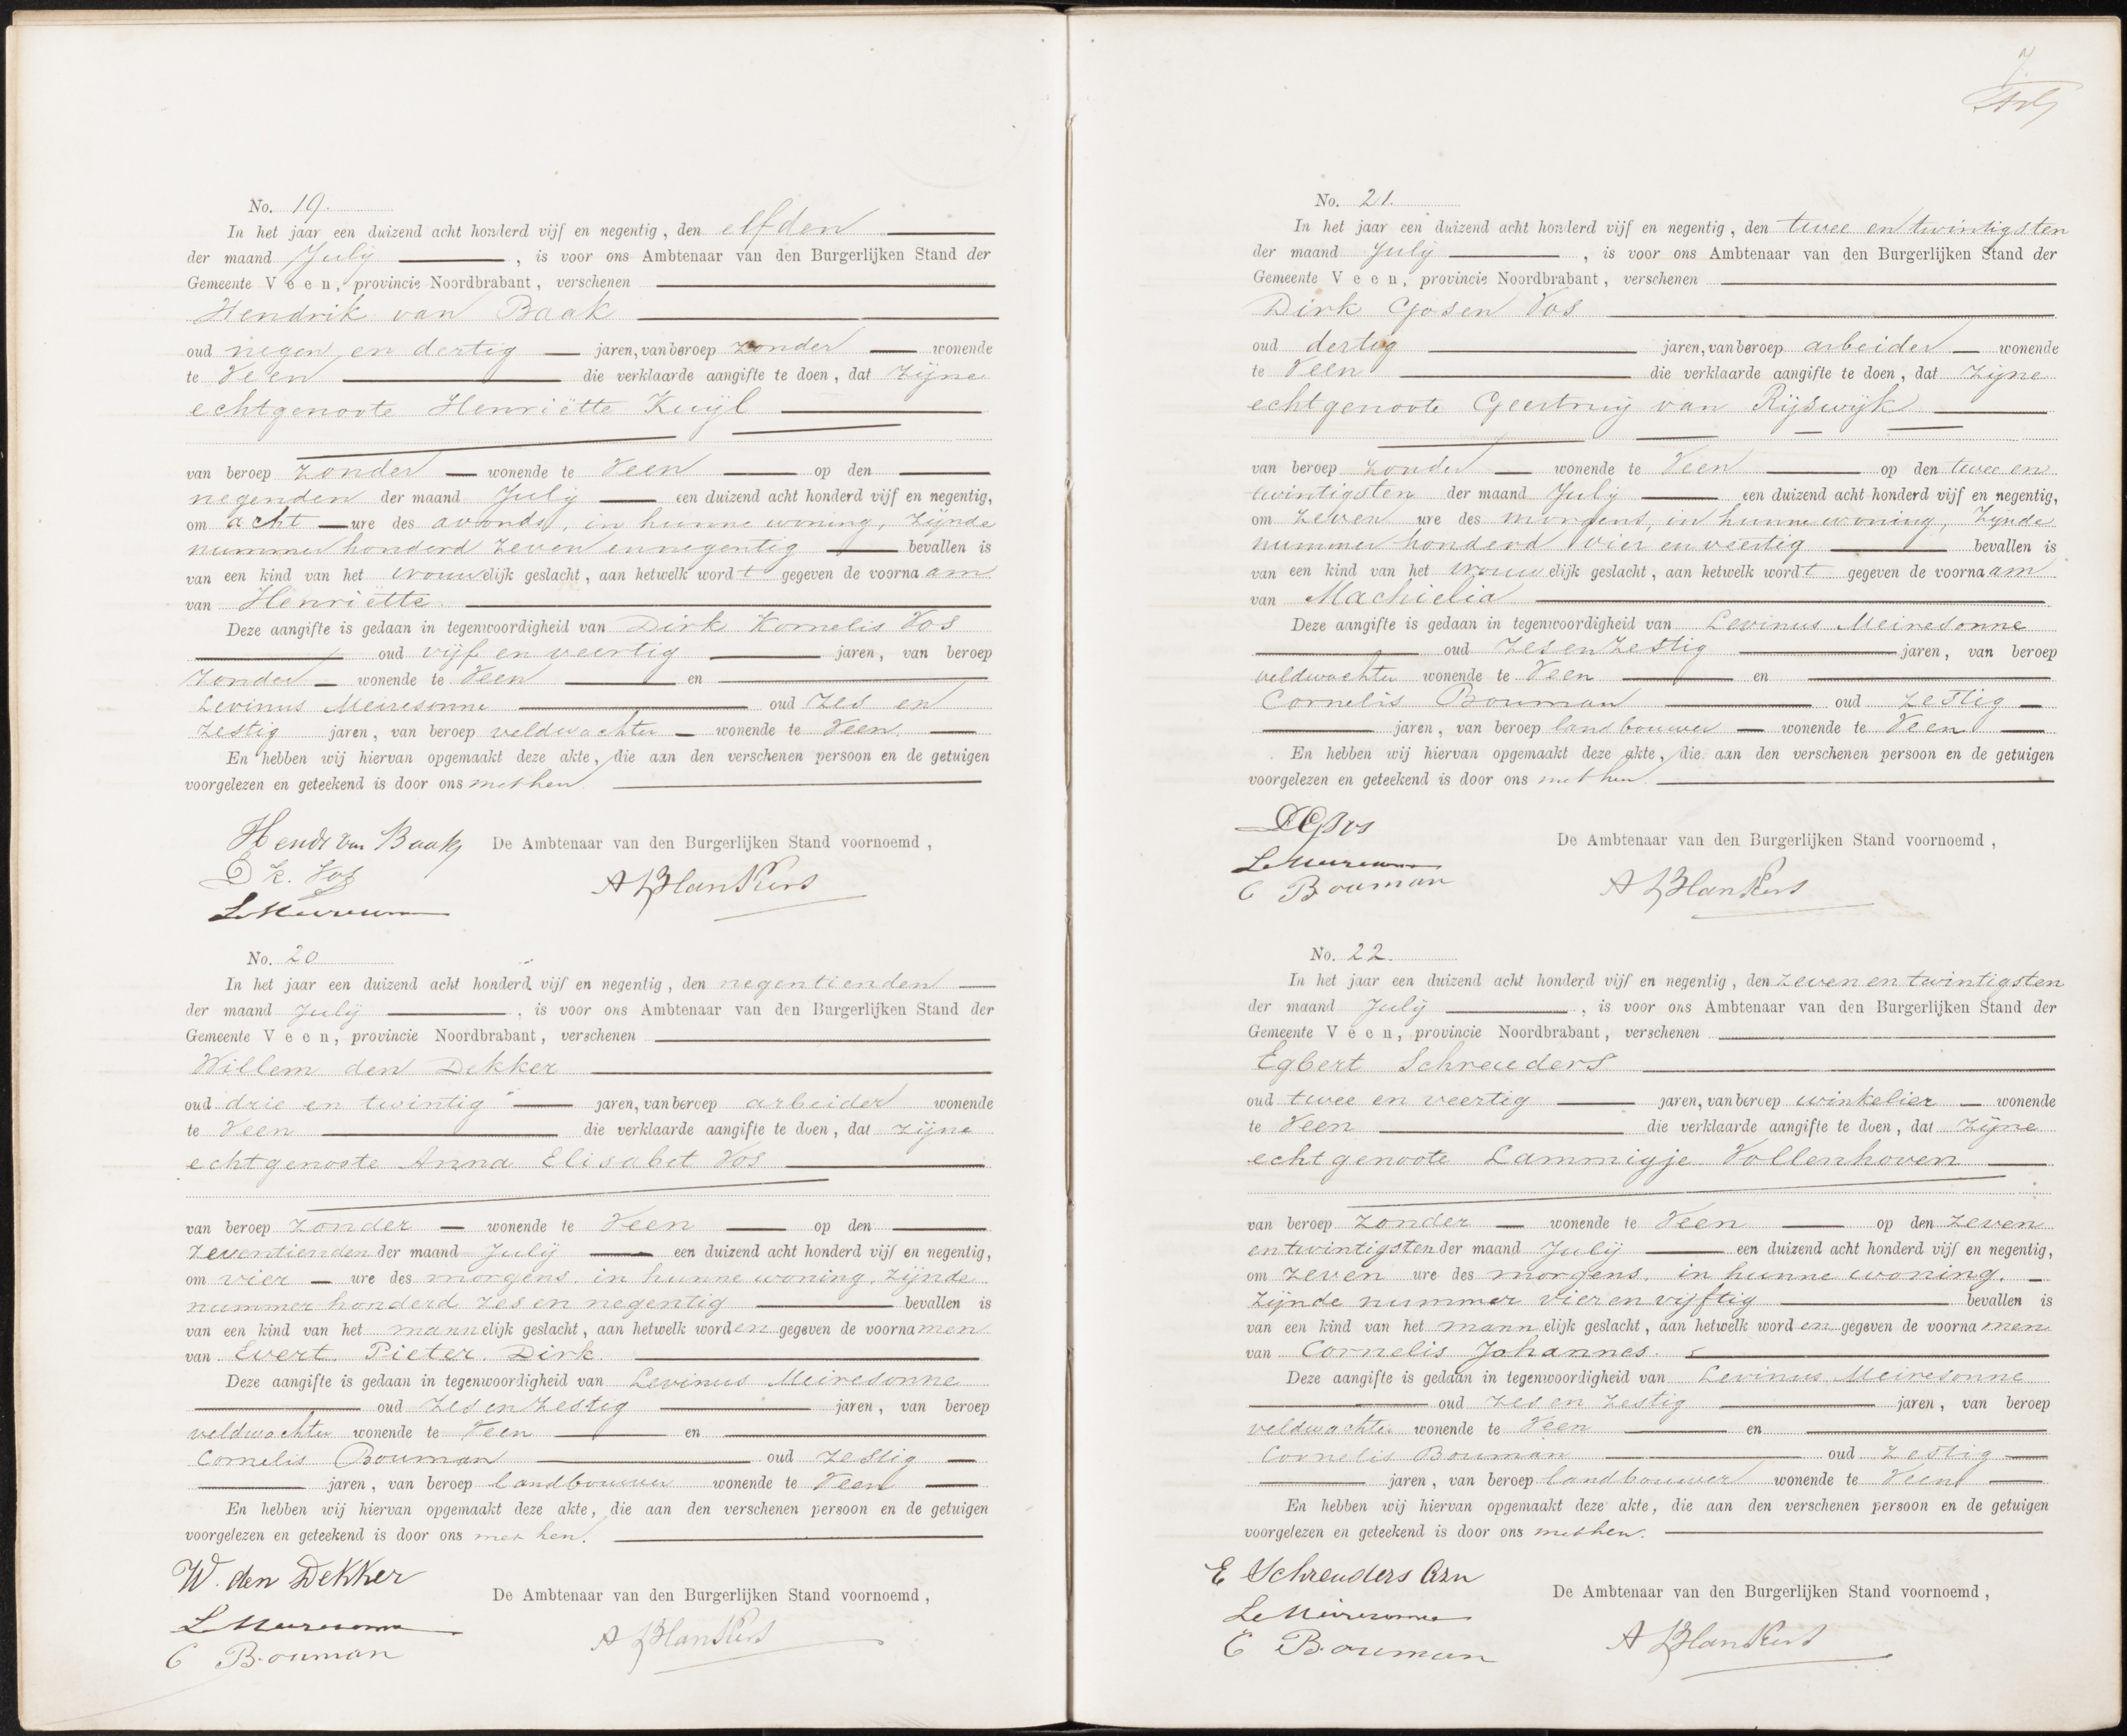 No. 19.
In het jaar een duizend acht honderd vijf en negentig, den elfden
der maand July, is voor ons Ambtenaar van den Burgerlijken Stand der
Gemeente Veen, provincie Noordbrabant, verschenen
Hendrik van Baak
oud negen en dertig jaren, van beroep zonder wonende
te Veen die verklaarde aangifte te doen, dat zijne
echtgenoote Henriëtte Kuijl
van beroep zonder wonende te Veen op den
negenden der maand July een duizend acht honderd vijf en negentig,
om acht ure des avonds, in hunne woning, zijnde
nummer honderd zeven en negentig bevallen is
van een kind van het vrouwelijk geslacht, aan hetwelk wordt gegeven de voornaam
van Henriëtte.
Deze aangifte is gedaan in tegenwoordigheid van Dirk Kornelis Vos
oud vijf en veertig jaren, van beroep
zonder wonende te Veen en
Levinus Meiresonne oud zes en
zestig jaren, van beroep veldwachter wonende te Veen.
En hebben wij hiervan opgemaakt deze akte, die aan den verschenen persoon en de getuigen
voorgelezen en geteekend is door ons met hen.
Hendr van Baak De Ambtenaar van den Burgerlijken Stand voornoemd,
D k. Vos A Blankers
L Meiresonne
No. 20
In het jaar een duizend acht honderd vijf en negentig, den negentienden
der maand July, is voor ons Ambtenaar van den Burgerlijken Stand der
Gemeente Veen, provincie Noordbrabant, verschenen
Willem den Dekker
oud drie en twintig jaren, van beroep arbeider wonende
te Veen die verklaarde aangifte te doen, dat zijne
echtgenoote Anna Elisabet Vos
van beroep zonder wonende te Veen op den
zeventienden der maand July een duizend acht honderd vijf en negentig,
om vier ure des morgens, in hunne woning, zijnde
nummer honderd zes en negentig bevallen is
van een kind van het mannelijk geslacht, aan hetwelk worden gegeven de voornamen
van Evert Pieter Dirk.
Deze aangifte is gedaan in tegenwoordigheid van Levinus Meiresonne
oud zes en zestig jaren, van beroep
veldwachter wonende te Veen en
Cornelis Bouman oud zestig
jaren, van beroep landbouwer wonende te Veen
En hebben wij hiervan opgemaakt deze akte, die aan den verschenen persoon en de getuigen
voorgelezen en geteekend is door ons met hen.
W. den Dekker
De Ambtenaar van den Burgerlijken Stand voornoemd,
L Meiresonne A Blankers
C Bouman
7.
No. 21.
In het jaar een duizend acht honderd vijf en negentig, den twee en twintigsten
der maand July, is voor ons Ambtenaar van den Burgerlijken Stand der
Gemeente Veen, provincie Noordbrabant, verschenen
Dirk Gosen Vos
oud dertig jaren, van beroep arbeider wonende
te Veen die verklaarde aangifte te doen, dat zijne
echtgenoote Geertruij van Rijswijk
van beroep zonder wonende te Veen op den twee en
twintigsten der maand July een duizend acht honderd vijf en negentig,
om zeven ure des morgens, in hunne woning, zijnde
nummer honderd vier en veertig bevallen is
van een kind van het vrouwelijk geslacht, aan hetwelk wordt gegeven de voornaam
van Machielia
Deze aangifte is gedaan in tegenwoordigheid van Levinus Meiresonne
oud zes en zestig jaren, van beroep
veldwachter wonende te Veen en
Cornelis Bouman oud zestig
jaren, van beroep landbouwer wonende te Veen
En hebben wij hiervan opgemaakt deze akte, die aan den verschenen persoon en de getuigen
voorgelezen en geteekend is door ons met hen.
DGVos De Ambtenaar van den Burgerlijken Stand voornoemd,
L Meiresonne
C Bouman A Blankers
No. 22.
In het jaar een duizend acht honderd vijf en negentig, den zeven en twintigsten
der maand July, is voor ons Ambtenaar van den Burgerlijken Stand der
Gemeente Veen, provincie Noordbrabant, verschenen
Egbert Schreuders
oud twee en veertig jaren, van beroep winkelier wonende
te Veen die verklaarde aangifte te doen, dat zijne
echtgenoote Lammigje Vollenhoven
van beroep zonder wonende te Veen op den zeven
en twintigsten der maand July een duizend acht honderd vijf en negentig,
om zeven ure des morgens, in hunne woning,
zijnde nummer vier en vijftig bevallen is
van een kind van het mannelijk geslacht, aan hetwelk worden gegeven de voornamen
van Cornelis Johannes.
Deze aangifte is gedaan in tegenwoordigheid van Levinus Meiresonne
oud zes en zestig jaren, van beroep
veldwachter wonende te Veen en
Cornelis Bouman oud zestig
jaren, van beroep landbouwer wonende te Veen
En hebben wij hiervan opgemaakt deze akte, die aan den verschenen persoon en de getuigen
voorgelezen en geteekend is door ons met hen.
E Schreuders Azn
De Ambtenaar van den Burgerlijken Stand voornoemd,
L Meiresonne
C Bouman A Blankers